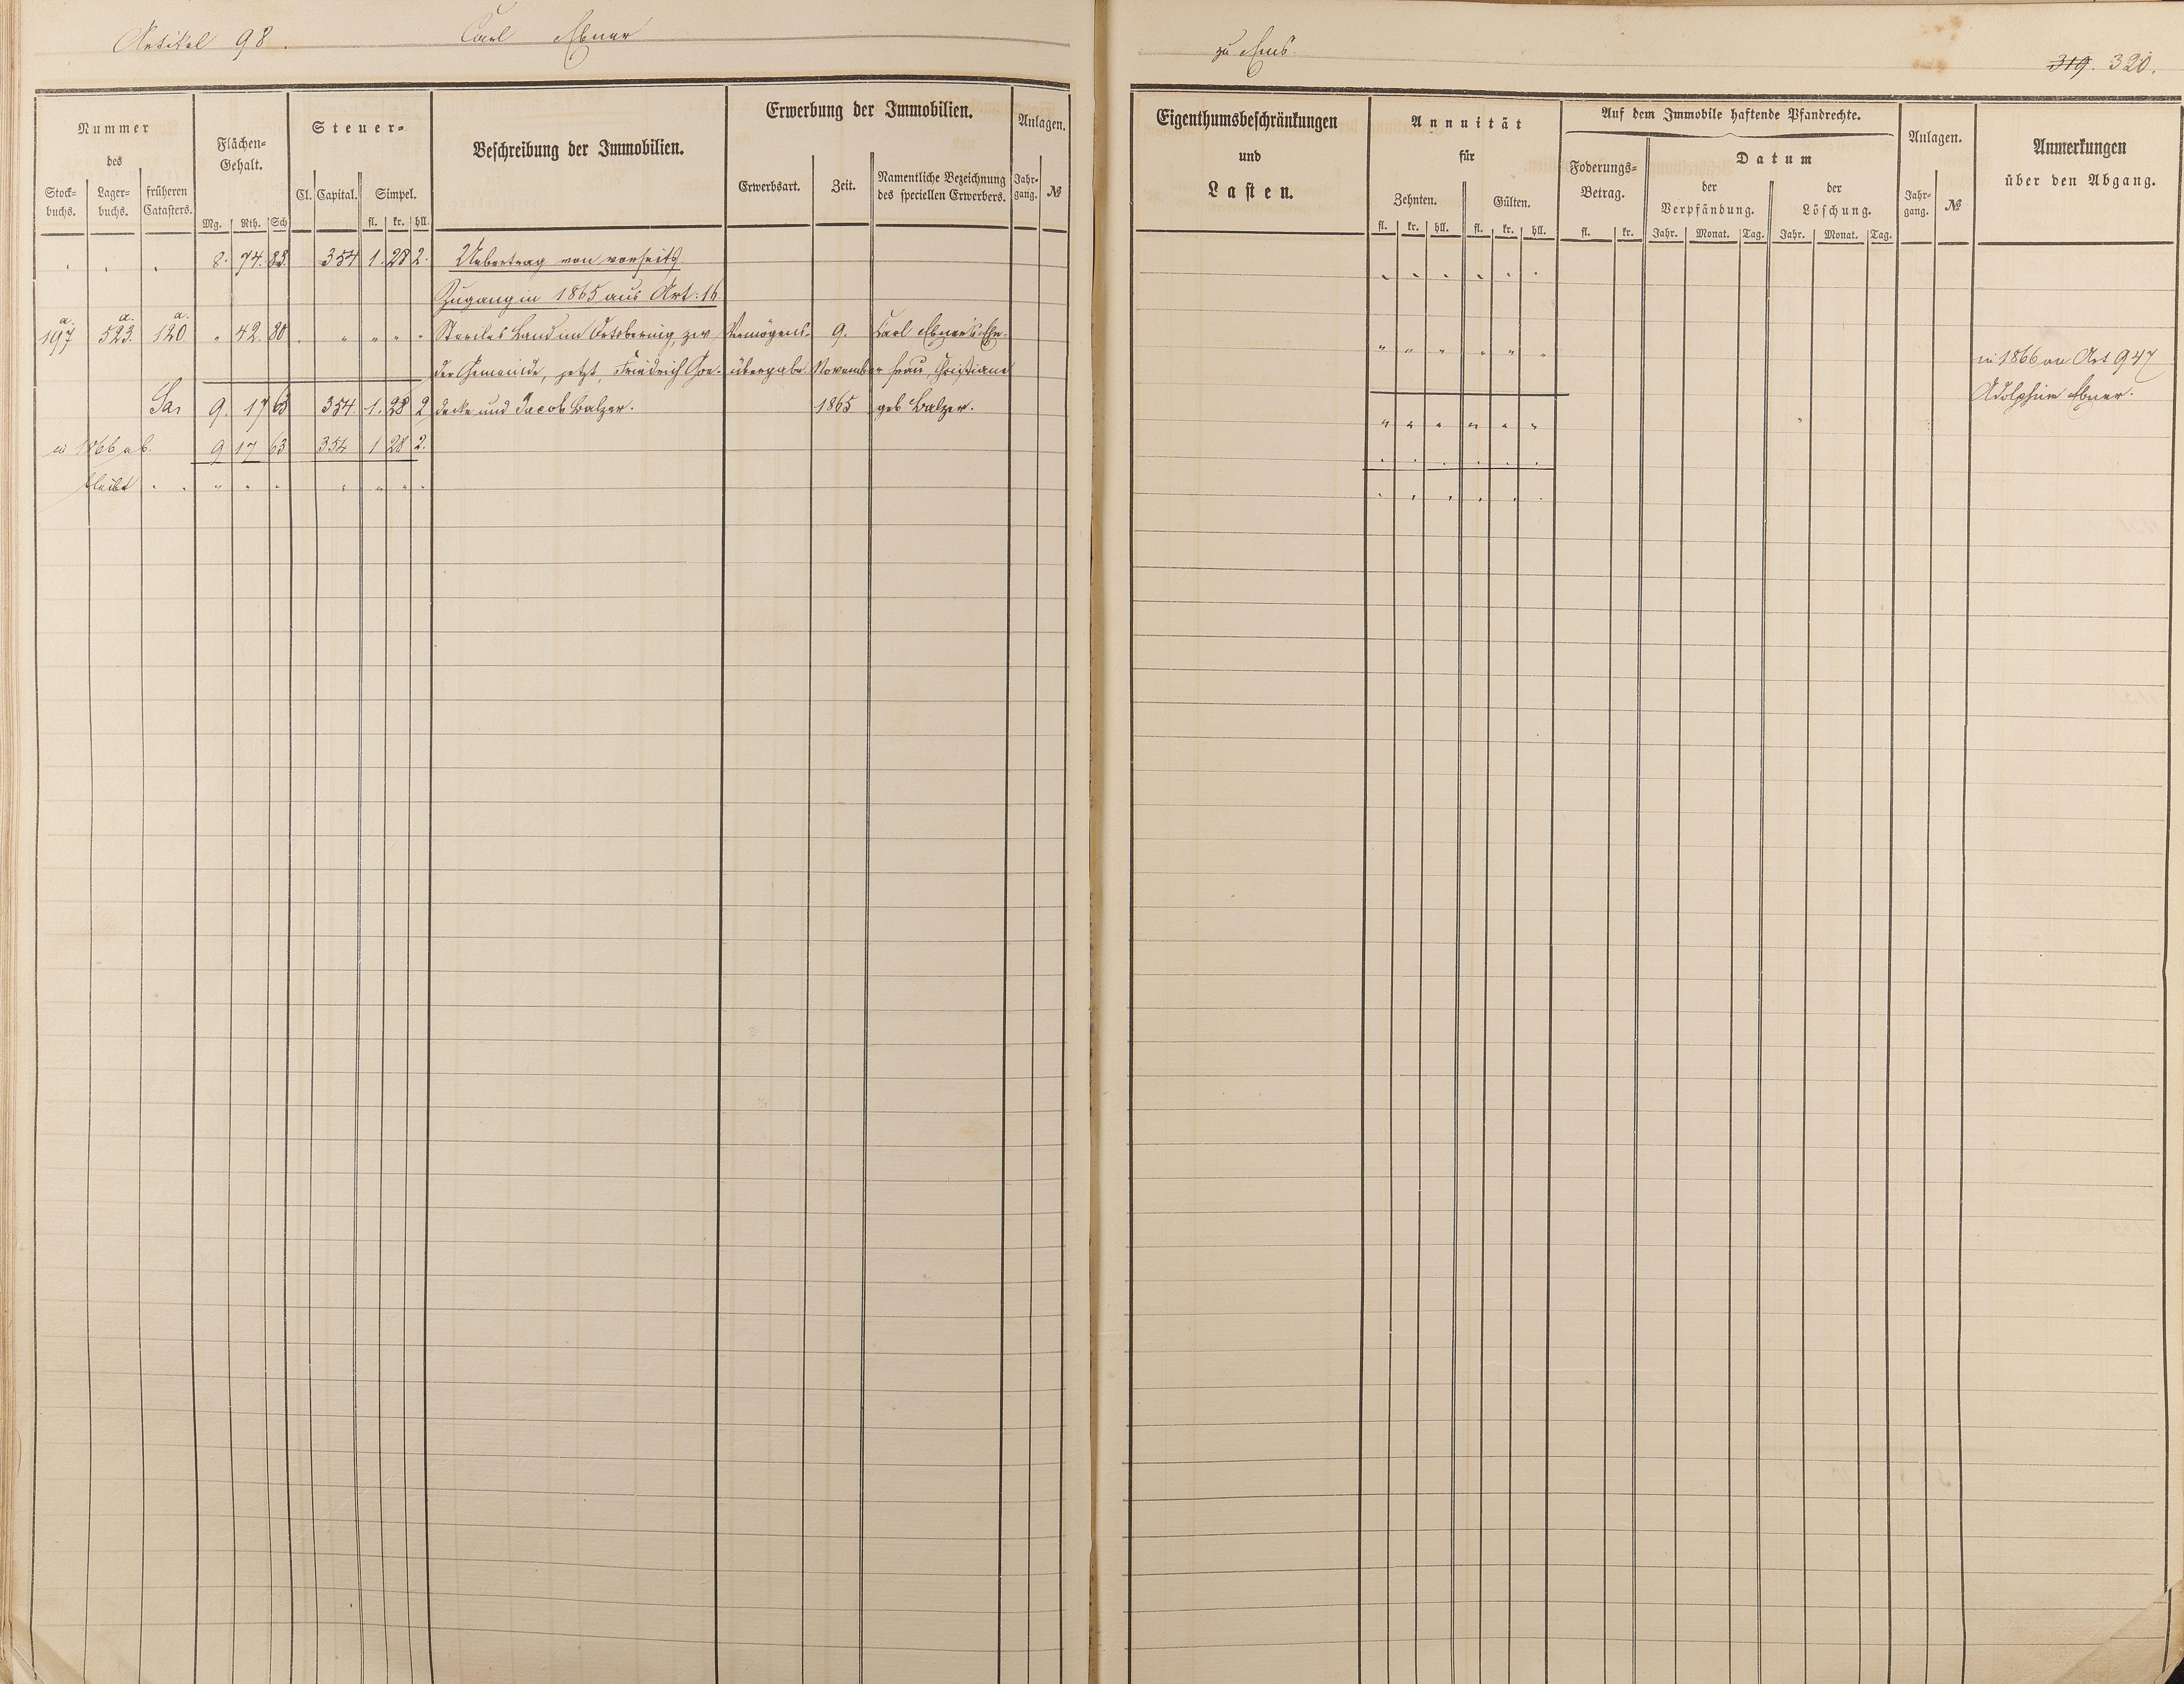 Artikel 98. Carl Ebner
zu Ems.
319. 320.
Nummer des
Stock-buchs. Lager-buchs. früheren Catasters.
Flächen-Gehalt.
Mg. Rth. Sch
Steuer-
Cl. Capital. Simpel.
fl. kr. hll.
Beschreibung der Immobilien.
Erwerbung der Immobilien.
Erwerbsart. Zeit. Namentliche Bezeichnung des speciellen Erwerbers.
Anlagen.
Jahr-gang. №
Eigenthumsbeschränkungen und Lasten.
Annuität für
Zehnten. Gülten.
fl. kr. hll. fl. kr. hll.
Auf dem Immobile haftende Pfandrechte.
Foderungs-Betrag.
fl. kr.
Datum
der Verpfändung. der Löschung.
Jahr. Monat. Tag. Jahr. Monat. Tag.
Anlagen.
Jahr-gang. №
Anmerkungen über den Abgang.
8. 74. 83. 354 1. 28 2. Uebertrag von vorseits
Zugang in 1865 aus Art: 16
a. a. a.
197 523. 120 " 42. 80 " " " " Steriles Land im zw Vermögens- 9. Carl Ebner's Ehe-
der Gemeinde, jetzt Friedrich Goe- übergabe November frau, Christiane
Sa, 9. 17 63 354. 1. 28 2 decke und Jacob Balzer. 1865 geb Balzer.
in 1866 ab. 9 17 63 354 1 28 2.
bleibt " " " " " " "
in 1866 an Art 947
Adolphine Ebner.